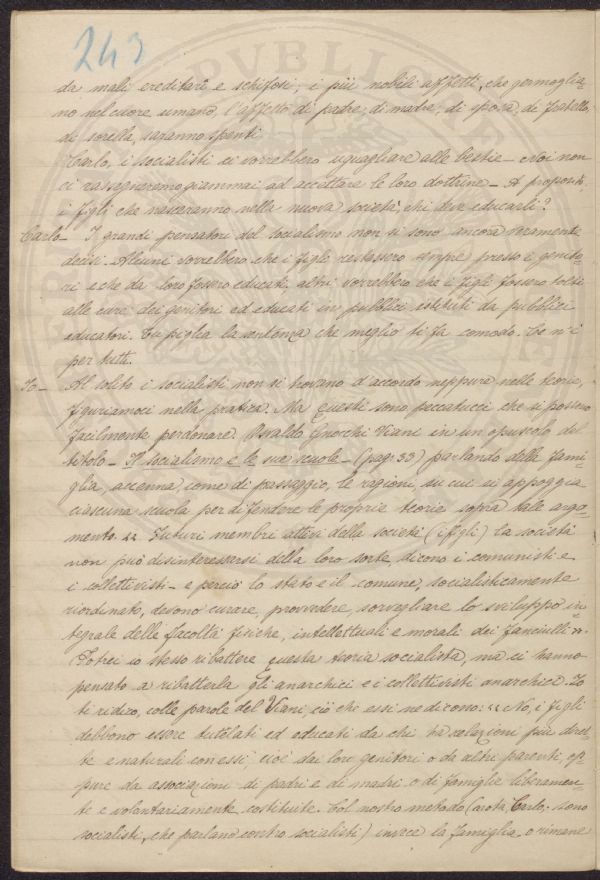 243
da mali ereditarî e schifosi; i più nobili affetti, che germoglia=
no nel cuore umano, l'affetto di padre, di madre, di sposa, di fratello,
di sorella, saranno spenti
Carlo, i socialisti ci vorrebbero uguagliare alle bestie — Noi non
ci rassegneremo giammai ad accettare le loro dottrine — A proposito,
i figli che nasceranno nella nuova società, chi deve educarli?
Carlo — I grandi pensatori del socialismo non si sono ancora veramente
decisi. Alcuni vorrebbero che i figli restassero sempre presso i genito=
ri e che da loro fossero educati, altri vorrebbero che i figli fossero tolti
alle cure dei genitori ed educati in pubblici istituti da pubblici
educatori. Tu piglia la sentenza che meglio ti fa comodo. Ce n'è
per tutti.
Io — Al solito i socialisti non si trovano d'accordo neppure nelle teorie,
figuriamoci nella pratica. Ma questi sono peccatucci che si possono
facilmente perdonare. Osvaldo Gnocchi Viani in un opuscolo dal
titolo — Il socialismo e le sue scuole — (pag. 33) parlando della fami=
glia, accenna, come di passaggio, le ragioni, su cui si appoggia
ciascuna scuola per difendere le proprie teorie sopra tale argo=
mento. "Futuri membri attivi della società (i figli) la società
non può disinteressarsi della loro sorte, dicono i comunisti e
i collettivisti — e perciò lo stato e il comune, socialisticamente
riordinato, devono curare, provvedere, sorvegliare lo sviluppo in=
tegrale delle facoltà fisiche, intellettuali e morali dei fanciulli".
Potrei io stesso ribattere questa teoria socialista, ma ci hanno
pensato a ribatterla gli anarchici e i collettivisti anarchici. Io
ti ridico, colle parole del Viani, ciò che essi ne dicono: "No, i figli
debbono essere tutelati ed educati da chi ha relazioni più diret=
te e naturali con essi, cioè dai loro genitori o da altri parenti, op=
pure da associazioni di padri e di madri o di famiglie liberamen=
te e volontariamente costituite. Col nostro metodo (nota, Carlo, sono
socialisti, che parlano contro socialisti) invece la famiglia o rimane